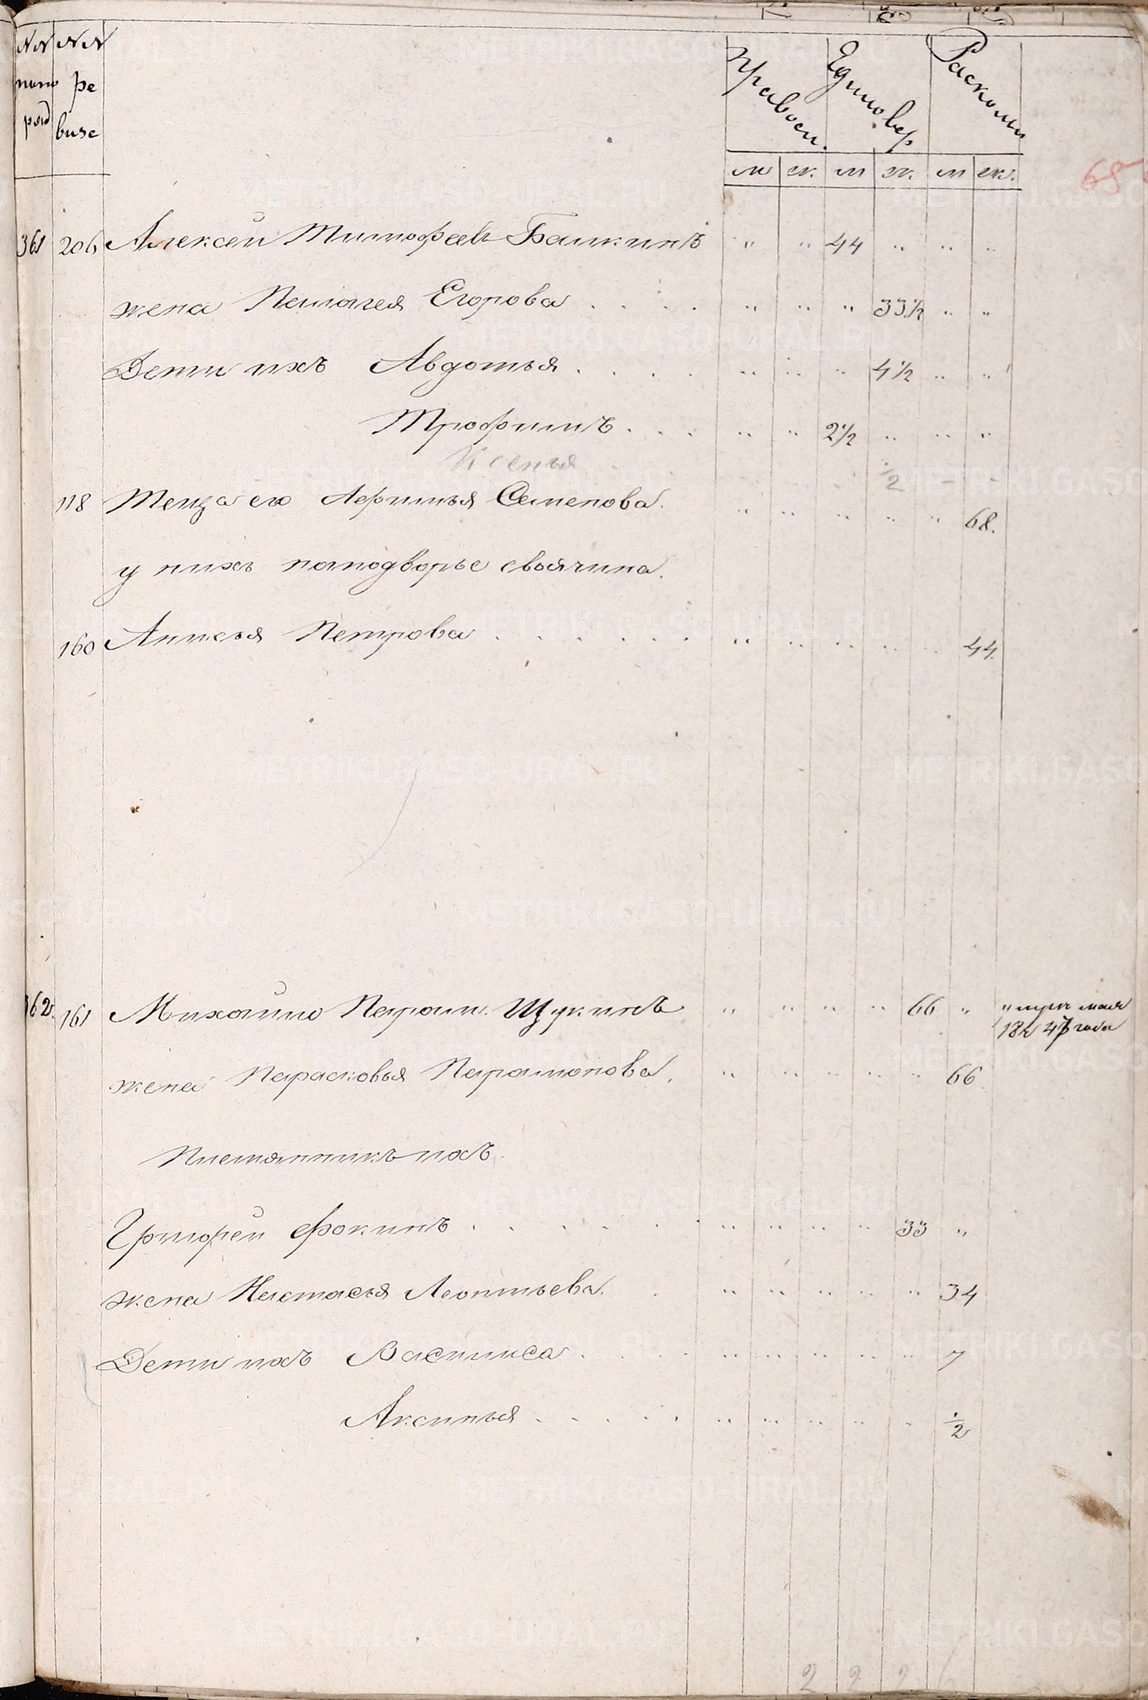 NN NN Правосл. Единовер Расколь
по ре
ряд визс
м ж. м ж. м ж.
68
361 206 Алексей Тимофеев Башкинъ " " 44 " " "
жена Пелагея Егорова . . . . " " " 33½ " "
Дети ихъ Авдотья . . . . " " " 4½ " "
Трофимъ . . . " " 2½ " " "
Ксенья ½ - -
118 Теща его Афимья Семенова. " " " " " 68.
у нихъ наподворье своячина.
160 Анисья Петрова . . . . . . . " " " " " 44.
362. 161 Михайло Парам. Щукинъ " " " " 66 " " мая
18 47 года
жена Парасковья Парамонова. " " " " " 66
Племянникъ ихъ.
Григорей Фокинъ . . . . . " " " " 33 "
жена Настасья Леонтьева. . " " " " " 34
Дети ихъ Василиса . . . . " " " " " 7
Аксинья . . . . . " " " " " ½
2 2 2